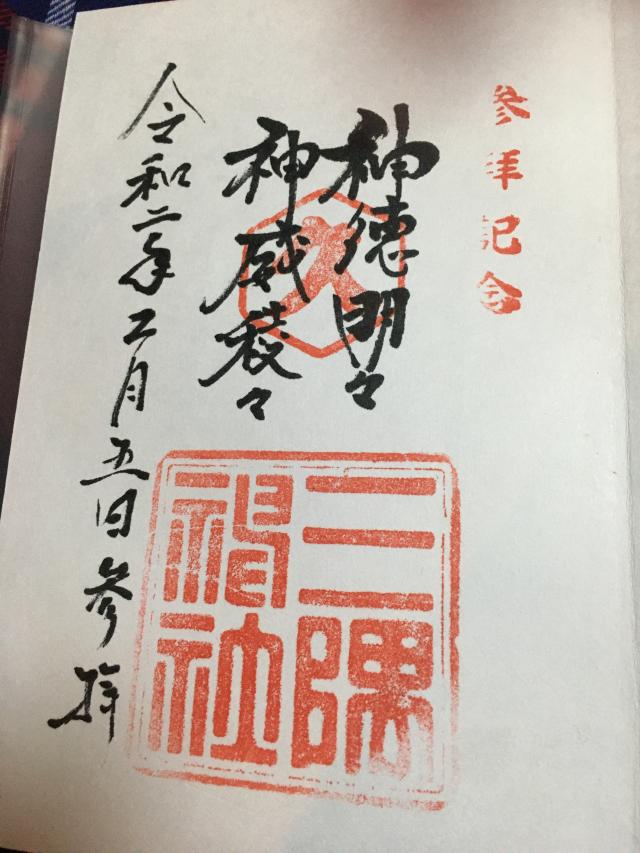 参拝記念
神徳明々
神威
令和二年二月五日参拝
三隅神社